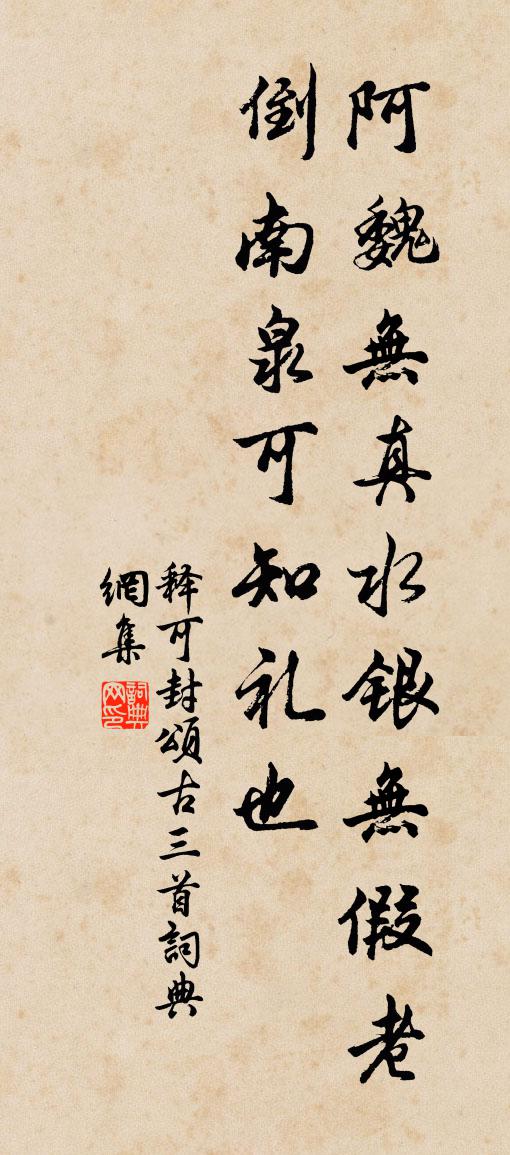 阿魏無真水銀無假老
倒南泉可知礼也
释可封頌古三首詞典
網集
詞典
网印